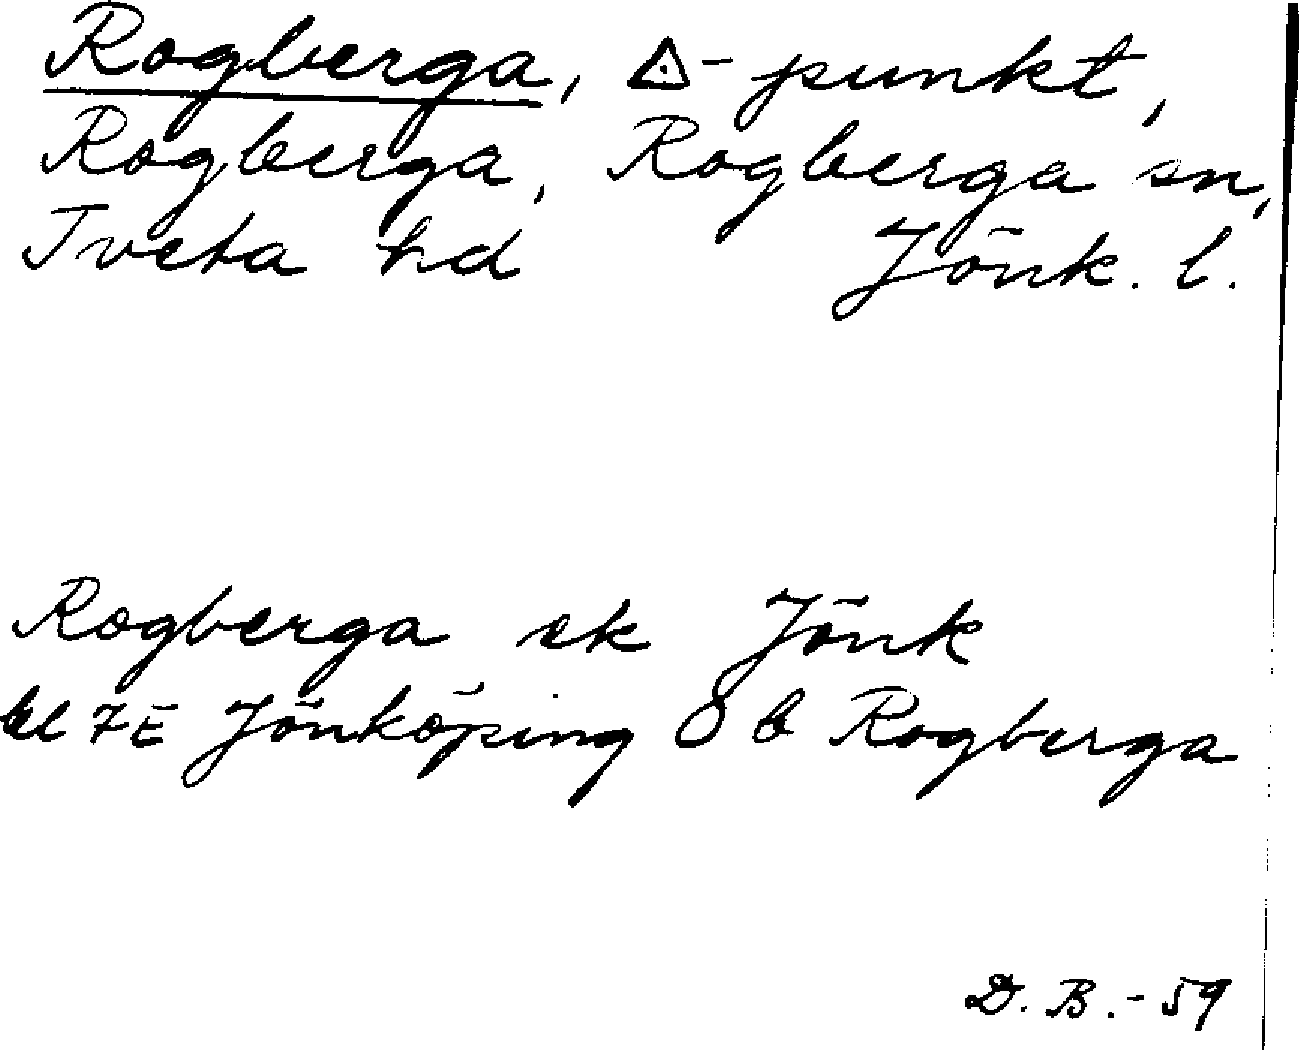 Rogberga, △-punkt,
Rogberga, Rogberga sn,
Tveta hd Jönk. l.
Rogberga ek Jönk
bl 7E Jönköping 8 b Rogberga
D. B. - 59